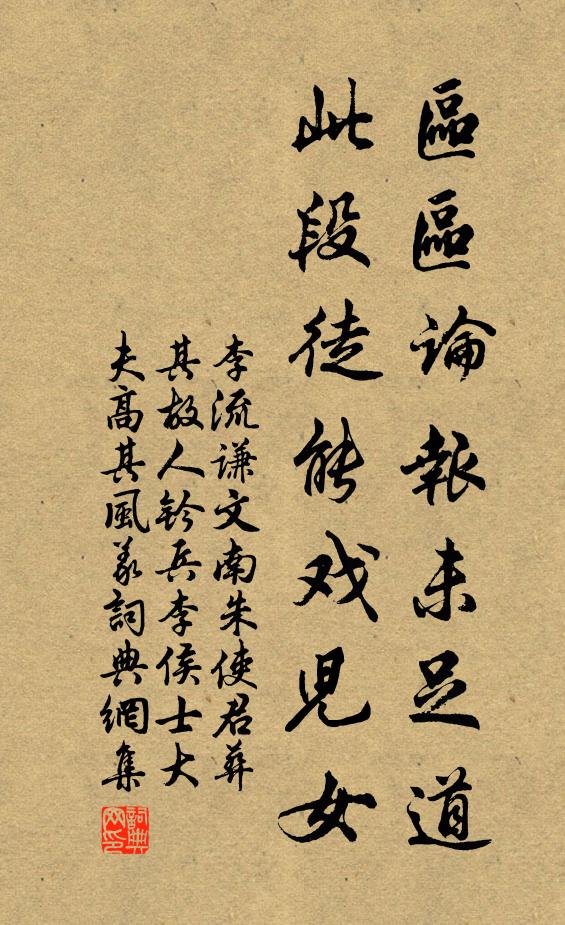 區區論報未足道
此段徒能戏兒女
李流謙文南朱使君葬
其故人鈐兵李侯士大
夫高其風義詞典網集
詞典网印